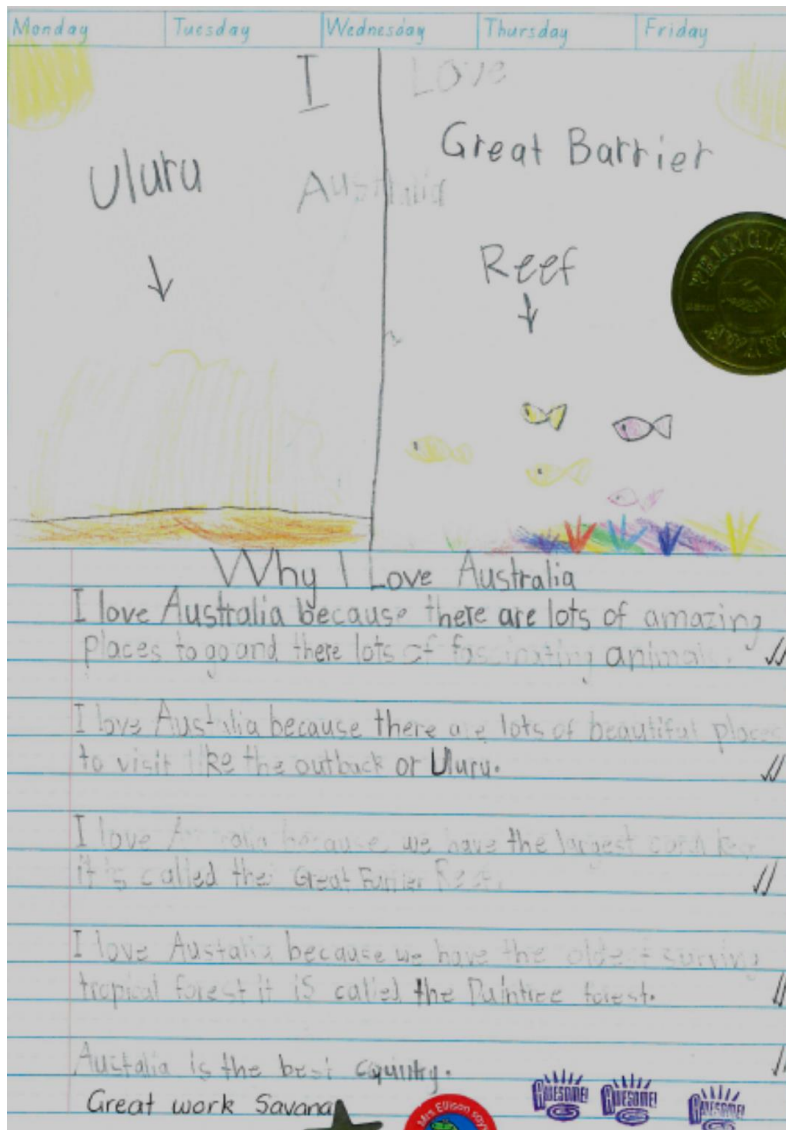 Monday Tuesday Wednesday Thursday Friday
I Love
Australia
Uluru
Great Barrier
Reef
Why I Love Australia
I love Australia because there are lots of amazing
places to go and there lots of fascinating animals.
I love Australia because there are lots of beautiful places
to visit like the outback or Uluru.
I love because we have the largest
it is called the Great Reef.
I love Austalia because we have the oldest surving
tropical forest it is called the Daintree forest.
Austalia is the best country.
Great work Savana
Mrs Ellison says
AWESOME! AWESOME! AWESOME!